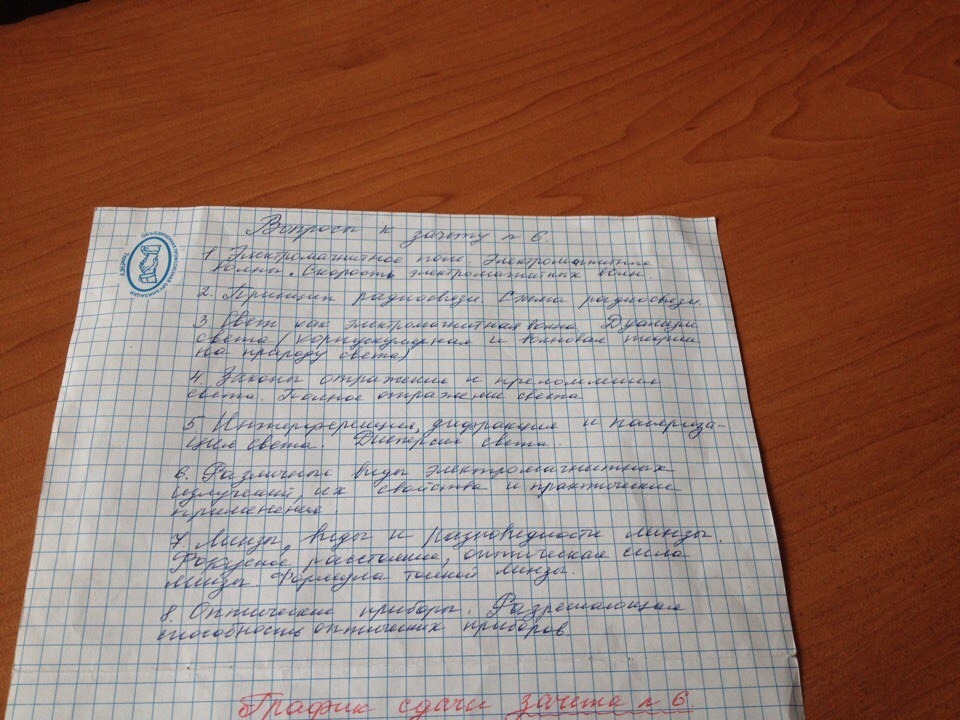 Вопросы к зачету № 6.
1 Электромагнитное поле Электромагнитные
волны. Скорость электромагнитных волн.
2. Принцип радиосвязи. Схема радиосвязи.
3 Свет как электромагнитная волна Дуализм
света (корпускулярная и волновая теории
на природу света)
4 Законы отражения и преломления
света. Полное отражение света
5 Интерференция, дифракция и поляриза-
ция света. Дисперсия света.
6. Различные виды электромагнитных
излучений, их свойства и практические
применения.
7 Линзы, виды и разновидности линзы.
Фокусное расстояние, оптическая сила
линзы Формула тонкой линзы.
8. Оптические приборы. Разрешающая
способность оптических приборов
График сдачи зачета № 6.